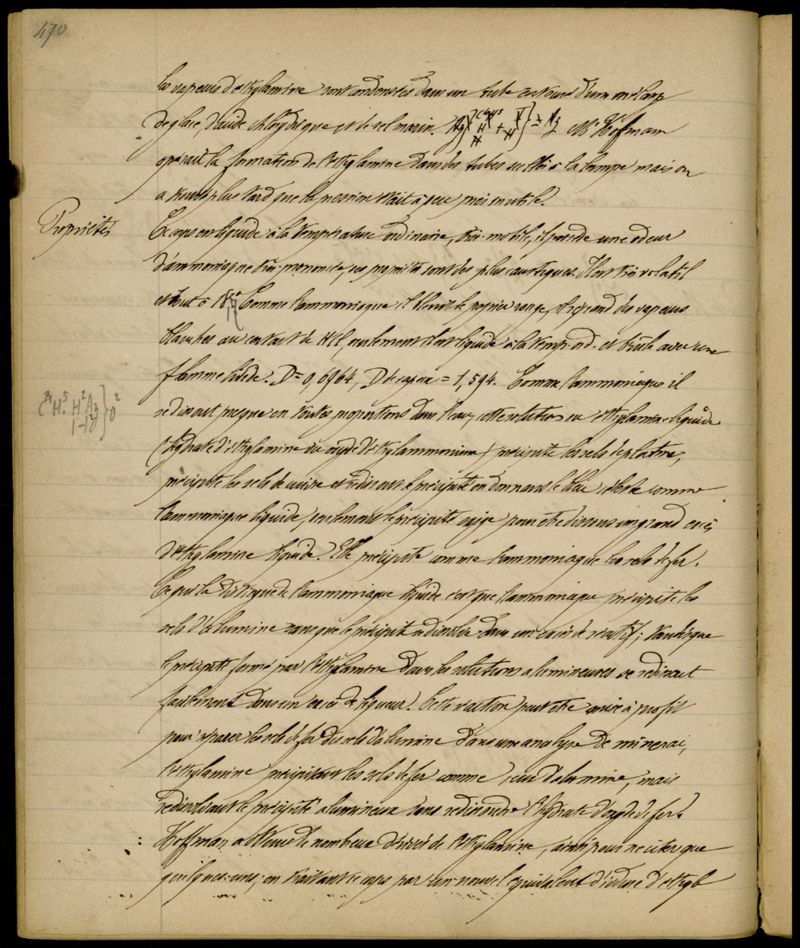 470
les vapeurs d'éthylamine sont condensées dans un tube entouré d'un mélange
de glace d'acide chlorhydrique et de sel marin. Mr Hofmann
opérait la formation de l'éthylamine dans des tubes scellés à la lampe mais on
a su plus tard que la pression était à peu près inutile.
Propriétés
Ce corps est liquide à la température ordinaire, très mobile, il possède une odeur
d'ammoniaque très prononcée, ses propriétés sont des plus caustiques. Il est très volatil
et bout à 18° Comme l'ammoniaque il bleuit le papier rouge, et répand des vapeurs
blanches au contact de HCl, seulement il est liquide à la temp. ord. et brûle avec une
flamme D = 0,6964, D de vapeur = 1,594. Comme l'ammoniaque il
se dissout presque en toutes proportions dans l'eau, cette solution ou éthylamine liquide
(hydrate d'éthylamine ou oxyde d'éthylammonium) précipite les sels de platine,
précipite les sels de cuivre et redissout le précipité en donnant le bleu céleste comme
l'ammoniaque liquide, seulement le précipité exige pour être dissous un grand excès
d'éthylamine liquide. Elle précipite comme l'ammoniaque les sels de fer.
Ce qui la distingue de l'ammoniaque liquide c'est que l'ammoniaque précipite les
sels d'alumine sans que le précipité se dissolve dans un excès de réactif; tandis que
le précipité formé par l'éthylamine dans les solutions alumineuses se redissout
facilement dans un excès de liqueur. Cette réaction peut être mise à profit
pour séparer les sels de fer des sels d'alumine dans une analyse de minerai,
l'éthylamine précipitant les sels de fer comme ceux d'alumine, mais
redissolvant le précipité alumineux sans redissoudre l'hydrate d'oxyde de fer.
Hoffman a obtenu de nombreux dérivés de l'éthylamine, ainsi pour ne citer que
quelques-uns, en traitant ce corps par un nouvel équivalent d'iodure d'éthyle